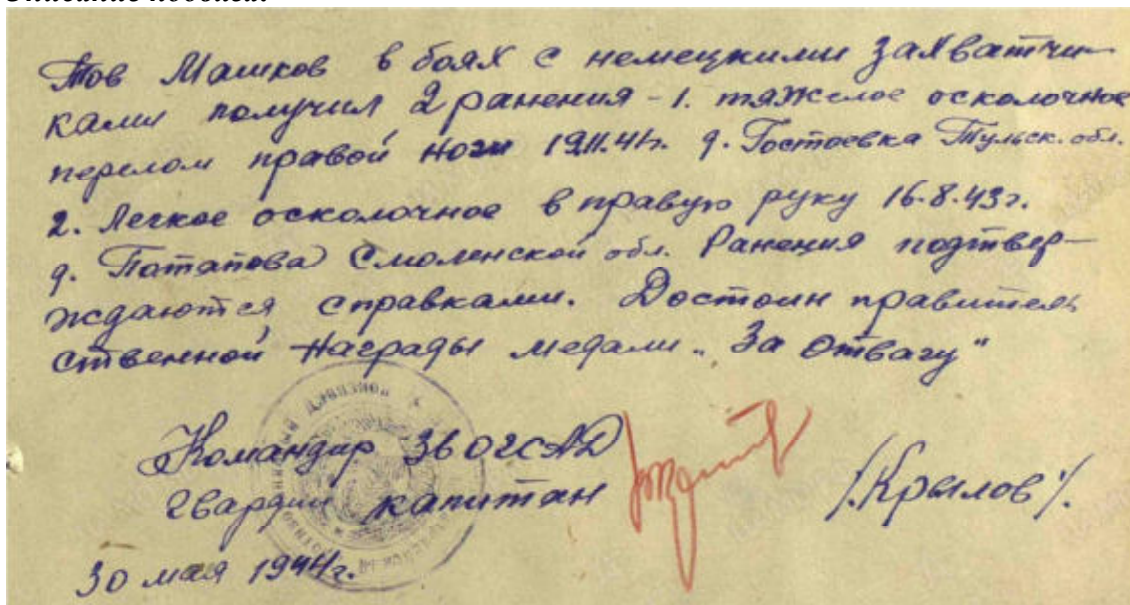 Тов Машков в боях с немецкими захватчи-
ками получил 2 ранения - 1. тяжелое осколочное
перелом правой ноги 19.11.41г. д. Гостоевка Тульск. обл.
2. Легкое осколочное в правую руку 16.8.43г.
д. Потапова Смоленской обл. Ранения подтвер-
ждаются справками. Достоин правитель
ственной Награды медали „За Отвагу"
Командир 36 ОГСАД
Гвардии капитан /.Крылов/.
30 мая 1944г.